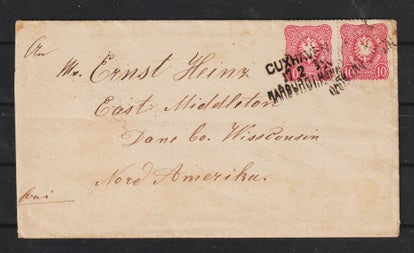 An
Mr. Ernst Heinz
East Middleton
Dane Co. Wissconsin
Nord Amerika.
frei
CUXHAVEN
17 2
HARBURG
10